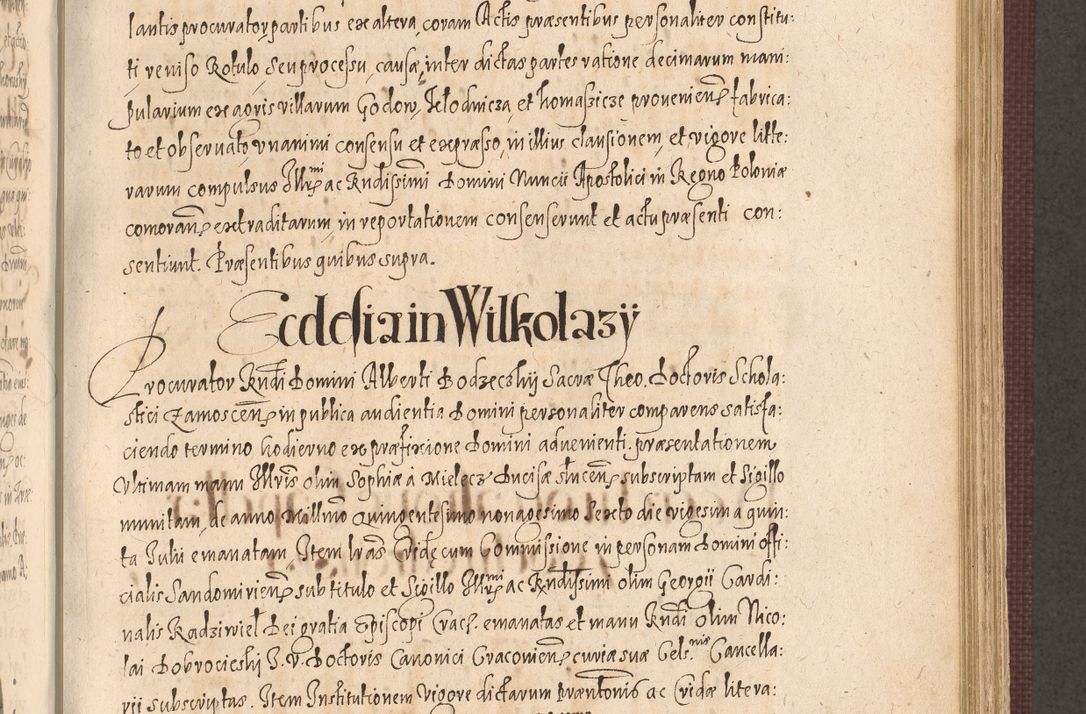 lantis procurator, partibus ex altera, coram Actis præsentibus personaliter constitu:
ti reviso Rotulo seu processu, causæ, inter dictas partes ratione decimarum mani:
pularium ex agris villarum Godow, Kłodnicza, et Thomaszicze provenien: fabrica:
to et observato, unanimi consensu et expræsso, in illius clausionem, et vigore litte:
rarum compulsus Illr͂mi ac Rndissimi Domini Nuncii Apostolici in Regno Poloniæ
comoran: extraditarum, in reportationem consenserunt et actu præsenti con:
sentiunt. Præsentibus quibus supra.
Ecclesia in Wilkolazÿ
Procurator Rndi Domini Alberti Bodzęczkij Sacræ Theo. Doctoris Schola:
stici Zamoscen: in publica audientia Domini personaliter comparens satisfa:
ciendo termino hodierno ex præfixione Domini advenienti. præsentationem
Ultimam manu Illris olim Sophiæ à Mielecz Ducissæ slucen: subscriptam et Sigillo
munitam, de anno Millimo Quingentesimo nonagesimo Sexto die vigesima quin:
ta Iulii emanatam. Item lras Cridæ cum Commissione in personam Domini offi:
cialis Sandomirien: sub titulo et Sigillo Illrmi ac Rndissimi olim Georgii Cardi:
nalis Radziwieł Dei gratia Episcopi Crac: emanatas et manu Rndi olim Nico:
lai Dobrocieski I. V. Doctoris Canonici Cracovien: curiæ suæ Cels:nis Cancella:
rii subscriptas. Item Institutionem vigore dictarum præntonis ac Cridæ litera: